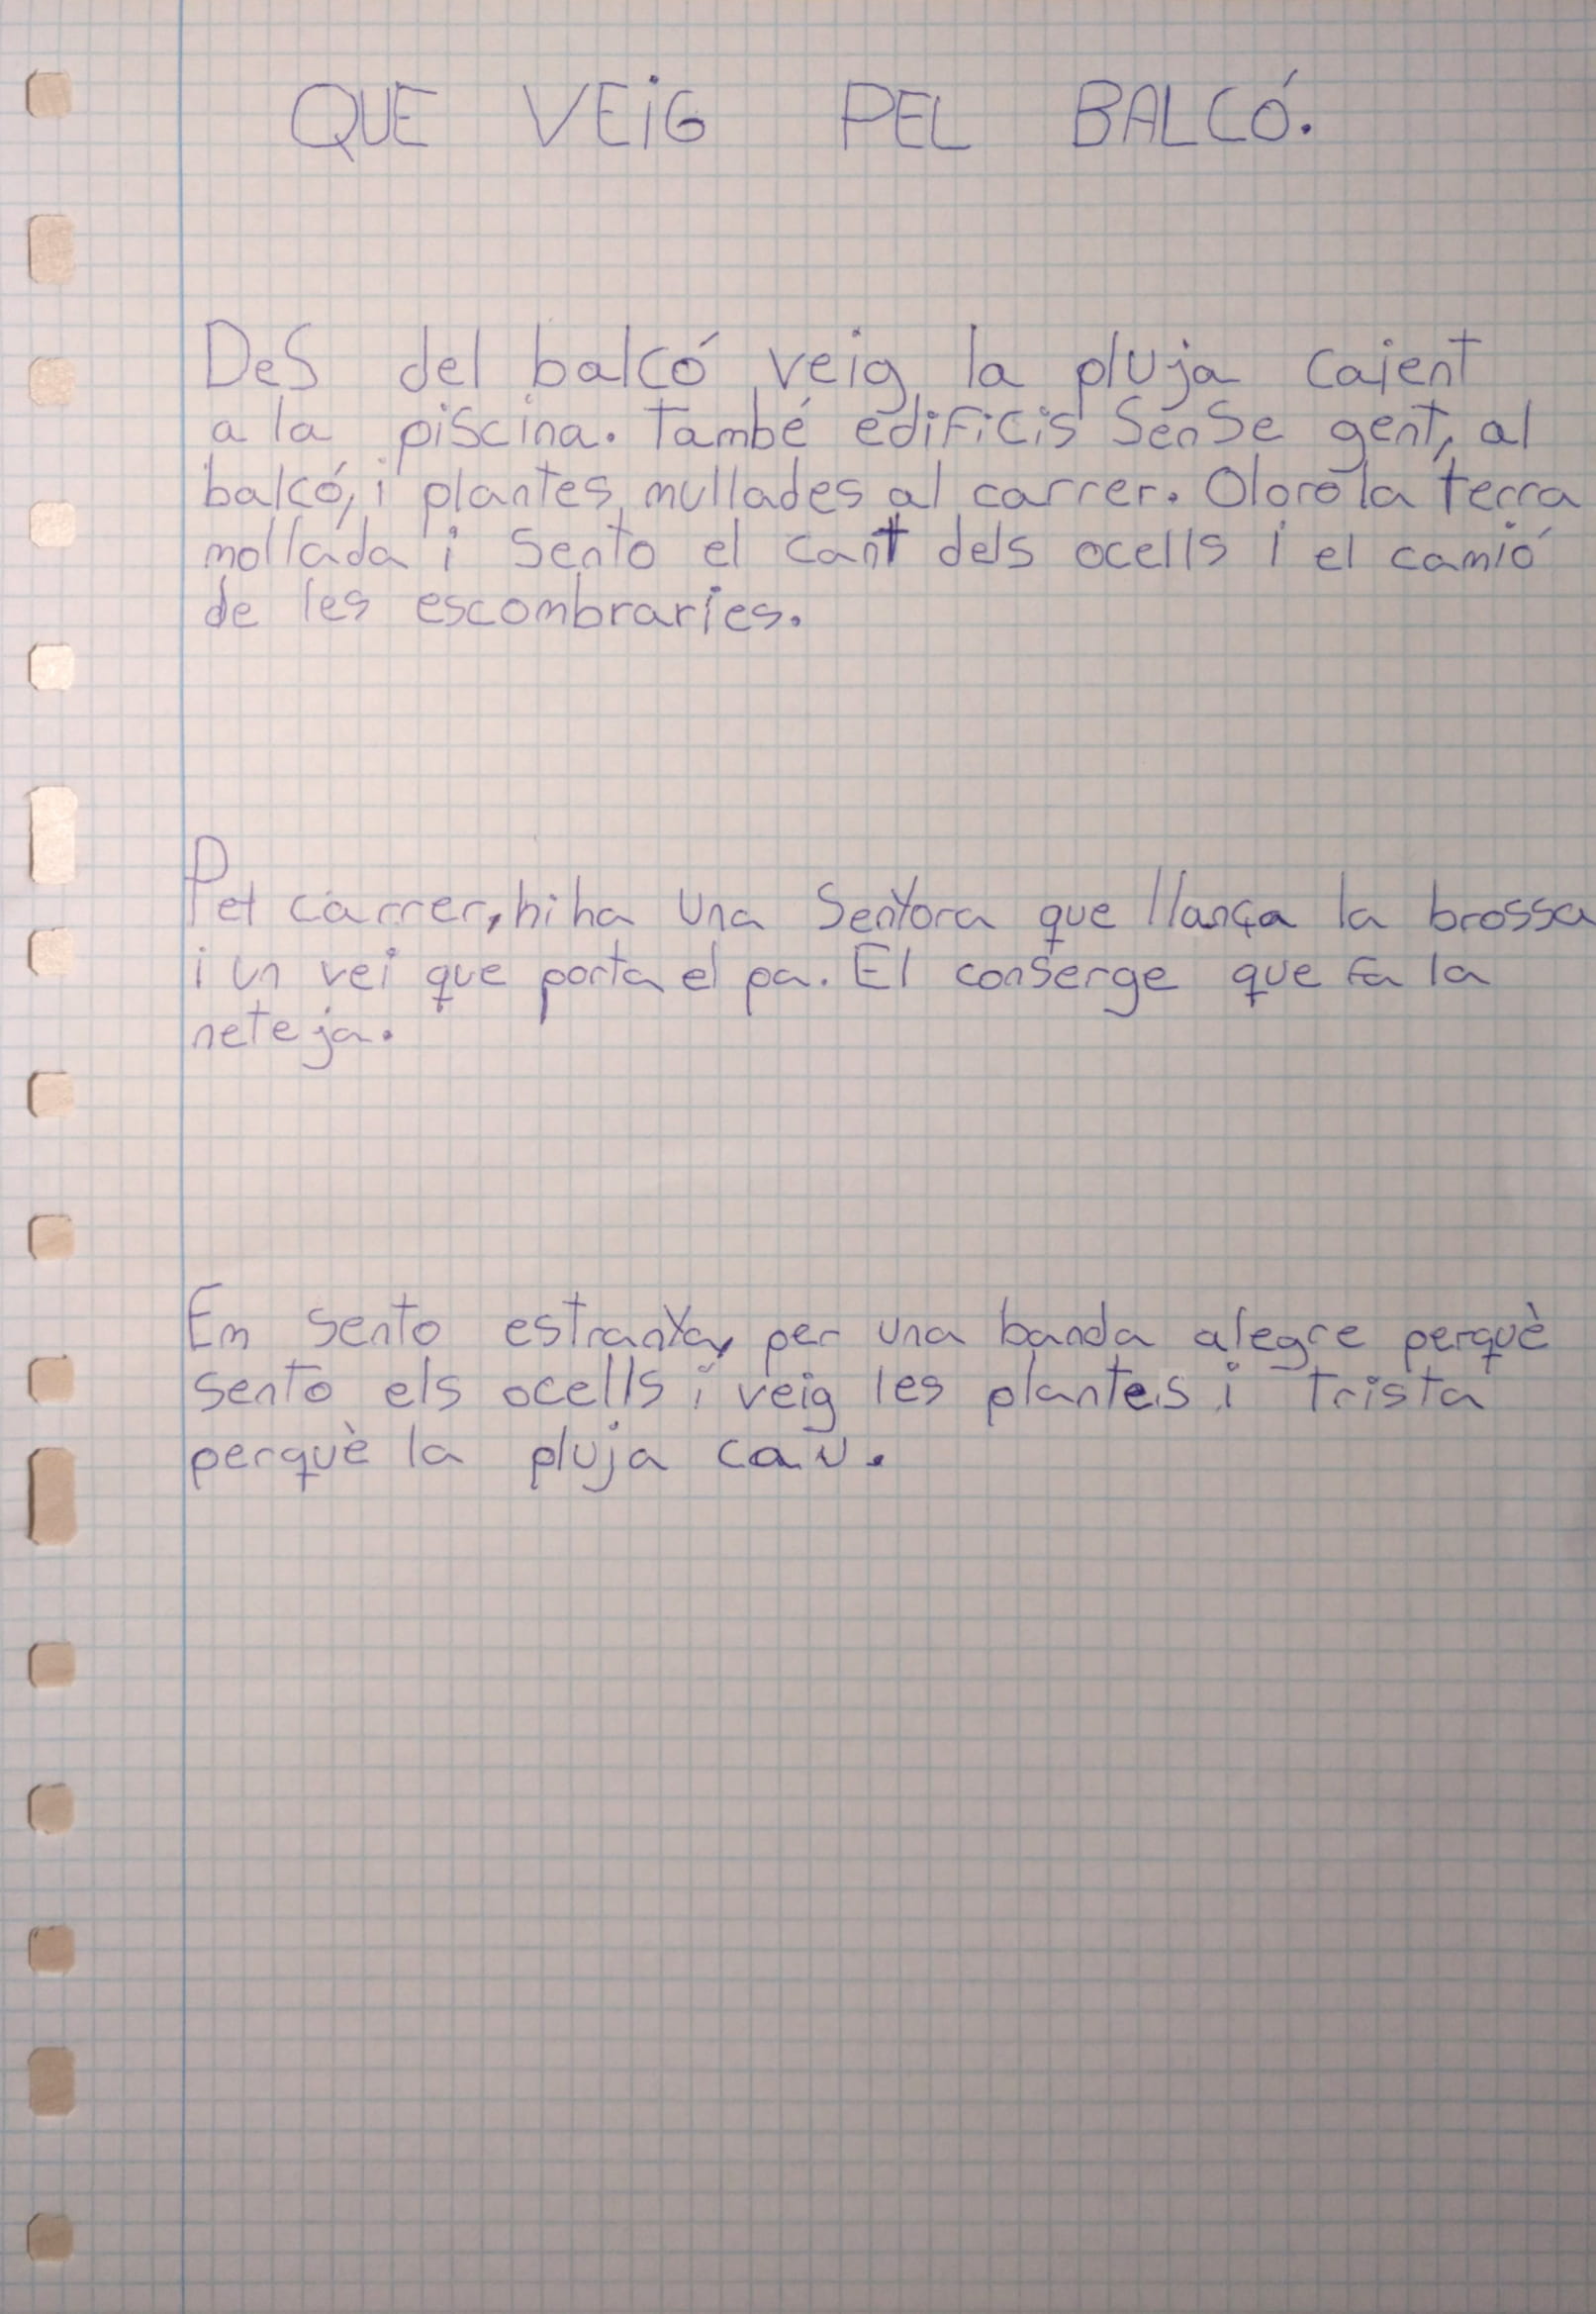 QUE VEiG PEL BALCÓ.
DeS del balcó veig la pluja caient
a la piscina. també edificis Sense gent, al
balcó, i plantes mullades al carrer. Oloro la terra
mollada i Sento el cant dels ocells i el camió
de les escombraríes.
Pel carrer, hi ha una Senyora que llança la brossa
i un vei que porta el pa. El conserge que fa la
neteja.
Em sento estranya, per una banda alegre perquè
sento els ocells i veig les plantes i trista
perquè la pluja cau.